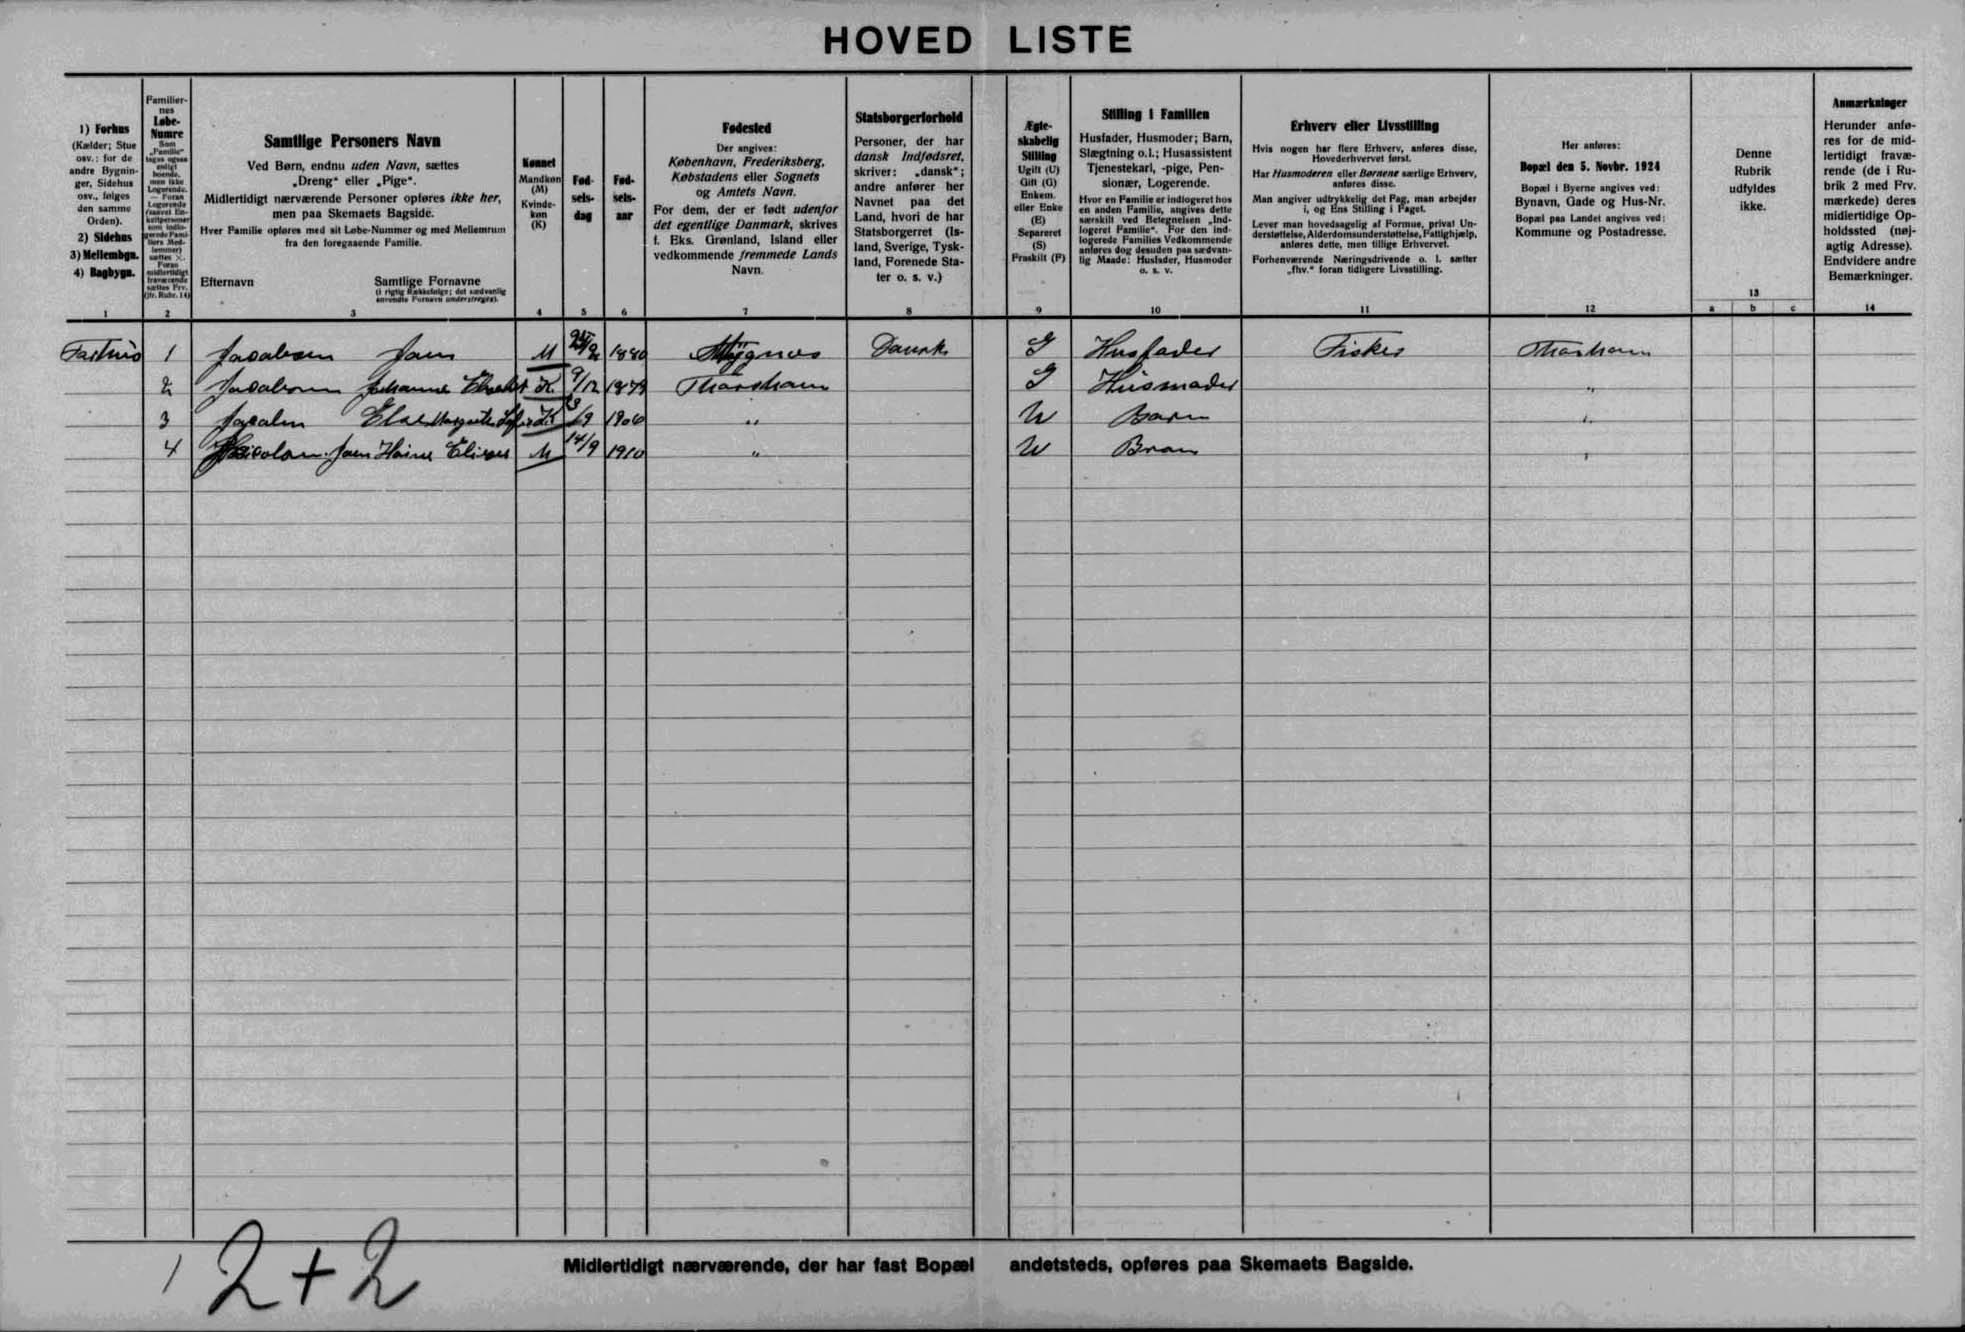 HOVED LISTE
1) Forhus
(Kælder; Stue
osv.: for de
andre Bygnin-
ger, Sidehus
osv., følges
den samme
Orden).
2) Sidehus
3) Mellembgn.
4) Bagbygn.
1
Familier-
nes
Løbe-
Numre
Som
„Familie"
tages ogsaa
enligt
boende,
men ikke
Logerende.
— Foran
Logerende
(saavel En-
keltpersoner
som indlo-
gerede Fami-
liers Med-
lemmer)
sættes ×.
Foran
midlertidigt
fraværende
sættes Frv.
(jfr. Rubr. 14)
2
Samtlige Personers Navn
Ved Børn, endnu uden Navn, sættes
„Dreng" eller „Pige".
Midlertidigt nærværende Personer opføres ikke her,
men paa Skemaets Bagside.
Hver Familie opføres med sit Løbe-Nummer og med Mellemrum
fra den foregaaende Familie.
Efternavn Samtlige Fornavne
(i rigtig Rækkefølge; det sædvanlig
anvendte Fornavn understreges).
3
Kønnet
Mandkøn
(M)
Kvinde-
køn
(K)
4
Fød-
sels-
dag
5
Fød-
sels-
aar
6
Fødested
Der angives:
København, Frederiksberg,
Købstadens eller Sognets
og Amtets Navn.
For dem, der er født udenfor
det egentlige Danmark, skrives
f. Eks. Grønland, Island eller
vedkommende fremmede Lands
Navn.
7
Statsborgerforhold
Personer, der har
dansk Indfødsret,
skriver: „dansk";
andre anfører her
Navnet paa det
Land, hvori de har
Statsborgerret (Is-
land, Sverige, Tysk-
land, Forenede Sta-
ter o. s. v.)
8
Ægte-
skabelig
Stilling
Ugift (U)
Gift (G)
Enkem.
eller Enke
(E)
Separeret
(S)
Fraskilt (F)
9
Stilling i Familien
Husfader, Husmoder; Barn,
Slægtning o.l.; Husassistent
Tjenestekarl, -pige, Pen-
sionær, Logerende.
Hvor en Familie er indlogeret hos
en anden Familie, angives dette
særskilt ved Betegnelsen „Ind-
logeret Familie". For den ind-
logerede Families Vedkommende
anføres dog desuden paa sædvan-
lig Maade: Husfader, Husmoder
o. s. v.
10
Erhverv eller Livsstilling
Hvis nogen har flere Erhverv, anføres disse,
Hovederhvervet først.
Har Husmoderen eller Børnene særlige Erhverv,
anføres disse.
Man angiver udtrykkelig det Fag, man arbejder
i, og Ens Stilling i Faget.
Lever man hovedsagelig af Formue, privat Un-
derstøttelse, Alderdomsunderstøttelse, Fattighjælp,
anføres dette, men tillige Erhvervet.
Forhenværende Næringsdrivende o. l. sætter
„fhv." foran tidligere Livsstilling.
11
Her anføres:
Bopæl den 5. Novbr. 1924
Bopæl i Byerne angives ved:
Bynavn, Gade og Hus-Nr.
Bopæl paa Landet angives ved:
Kommune og Postadresse.
12
Denne
Rubrik
udfyldes
ikke.
13
a b c
Anmærkninger
Herunder anfø-
res for de mid-
lertidigt fravæ-
rende (de i Ru-
brik 2 med Frv.
mærkede) deres
midlertidige Op-
holdssted (nøj-
agtig Adresse).
Endvidere andre
Bemærkninger.
14
1 Jacobsen Joen M 1880 Mygnæs Dansk G Husfader Fisker Thorshavn
2 Jacobsen Johanne K 9/12 1879 Thorshavn G Husmoder "
3 Else Margrethe K /9 1906 " U Barn "
4 Joen M 14/9 1910 " U Bran "
1 2+2
Midlertidigt nærværende, der har fast Bopæl andetsteds, opføres paa Skemaets Bagside.